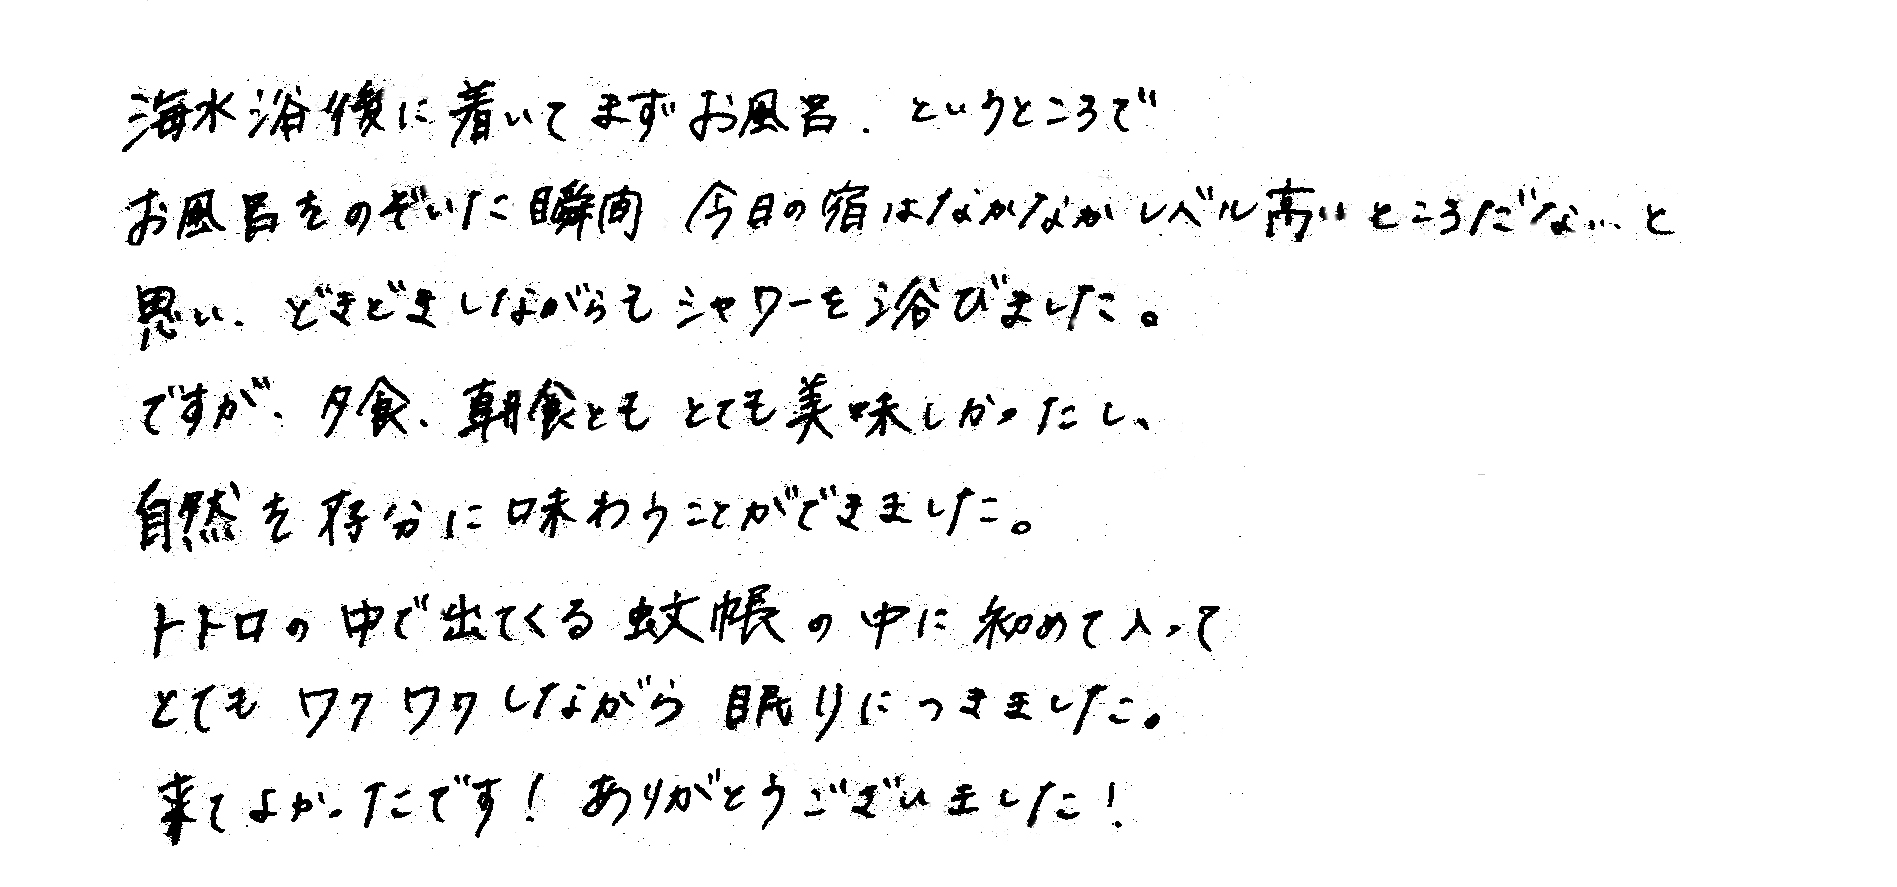 海水浴後に着いてまずお風呂、というところで
お風呂をのぞいた瞬間 今日の宿はなかなかレベル高いところだな…と
思い、どきどきしながらもシャワーを浴びました。
ですが、夕食、朝食とも とても美味しかったし、
自然を存分に味わうことができました。
トトロの中で出てくる蚊帳の中に初めて入って
とても ワクワクしながら 眠りにつきました。
来てよかったです！ ありがとうございました！